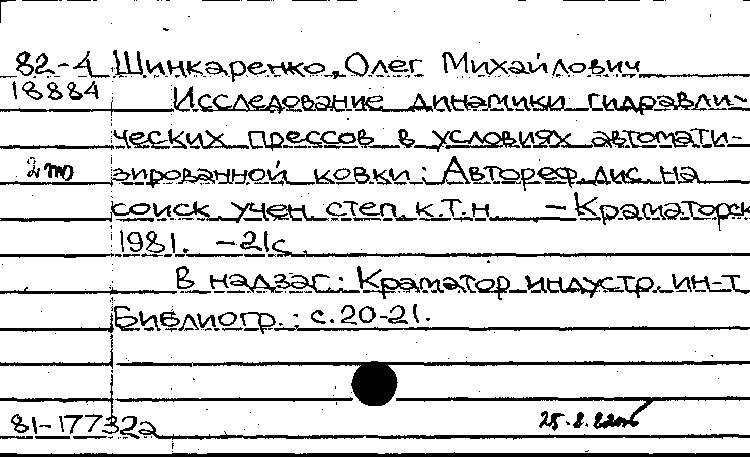 82-4 Шинкаренко, Олег Михайлович
18884 Исследование динамики гидравли-
ческих прессов в условиях автомати-
2 т зированной ковки: Автореф. дис. на
соиск. учен. степ. к.т.н. - Краматорск
1981. - 21 с.
В надзаг.: Краматор. индустр. ин-т
Библиогр.: с. 20-21.
81-17732а